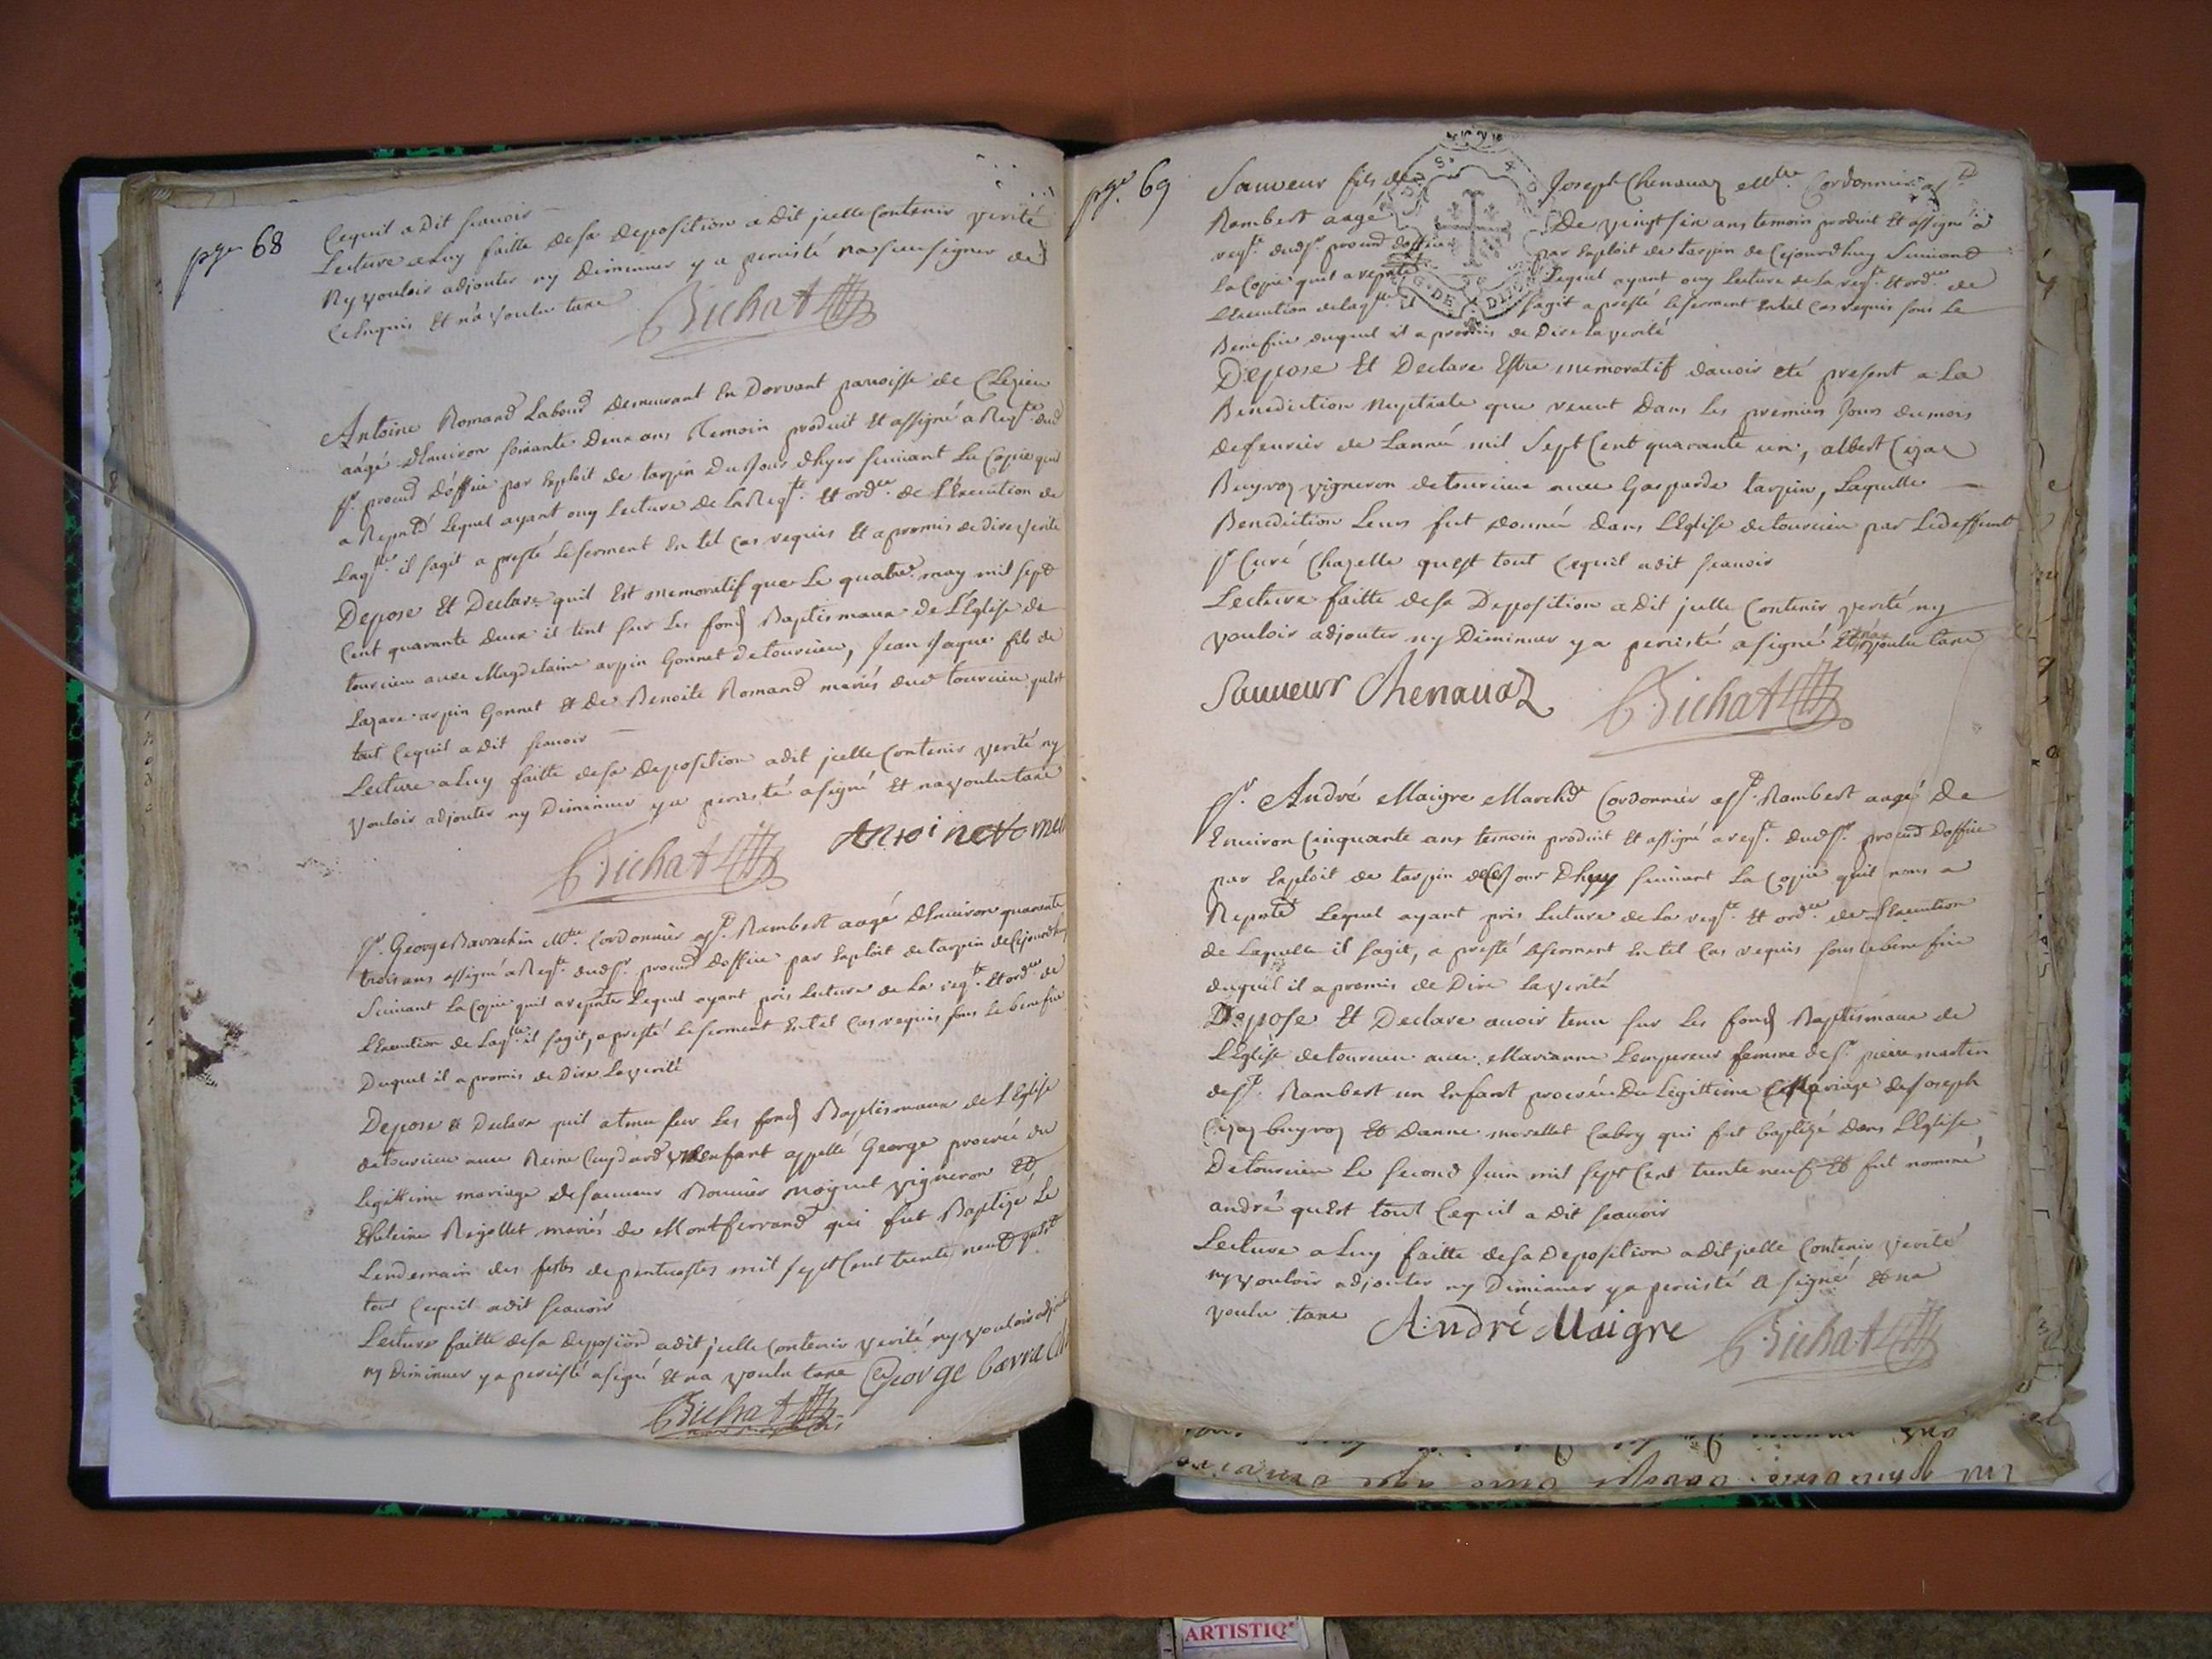 page 68
Cequil a Dit scauoir
Lecture a Luy faitte de sa deposition a dit jcelle Contenir verité
Ny vouloir adjouter ny Diminuer y a percisté na sceu signer de
Ce Enquis Et n'a voulu taxe
Bichat
Antoine Romand Labour demeurant En Dorvant parroisse de Clezieu
aágé dEnuiron soixante Deux ans Temoin produit Et assigné a Reqte dud
Sr procur dóffice par Exploit de tarpin Du Jour dhyer suiuant La Copie quil
a Repnté Lequel ayant ouy Lecture de La Reqte Et ordce de l'Execution de
Laqlle il sagit a presté le serment En tel cas requis Et a promis de dire verité
Depose Et Declare quil Est memoratif que Le quatre may mil sept
Cent quarante deux il tint sur Les fonds Baptismaux de L'Eglise de
torcieu auec Magdelaine arpin Gonnet de torcieu, Jean Jaque fils de
Lazare arpin Gonnet Et de Benoite Romand mariés dud torcieu quest
tout Cequil a dit scauoir
Lecture a Luy faitte de sa deposition a dit jcelle Contenir verité ny
vouloir adjouter ny Diminuer y a percisté a signé Et na voulu taxe
Bichat Antoine Rome
Sr. George Barrachin Mtre Cordonnier a St. Rambert aagé dEnuiron quarante
trois ans assigné a Reqte dud Sr. procur doffice par Exploit de tarpin de Cejourdhuy
Suiuant La Copie quil a repnté Lequel ayant pris Lecture de La reqte Et ordce de
lExecution de Laqlle il sagit, a presté le serment En tel Cas requis sous Le benefice
Duquel il a promis de Dire La verité
Depose & Declare quil a tenu sur Les fonds Baptismaux de L'Eglise
de torcieu auec Reine Cuydard un enfant appellé George procréé du
legittime mariage de sauueur Bouuier Noguet vigneron Et
dheleine Rigollet mariés de Montferrand qui fut Baptizé Le
Lendemain des festes de pentecostes mil sept Cent trente neuf quest
tout Cequil a dit scauoir
Lecture faitte de sa deposion a dit jcelle Contenir verité ny vouloir adjouter
ny Diminuer y a percisté a signé Et na voulu taxe George barrachi
Bichat
page 69
Sauveur fils de Joseph Chenauaz Mtre Cordonnier a St
Rambert aagé De vingt six ans temoin produit Et assigné a
reqte dud Sr procur doffice par Exploit de tarpin de Cejourdhuy Suiuant
la Copie quil a repnté Lequel ayant ouy Lecture de La reqte Et ordce de
lExecution de laqlle il sagit a presté le serment En tel Cas requis sous Le
Benefice duquel il a promis de Dire La verité
Depose Et Declare Estre memoratif dauoir eté present a La
Benediction Nuptiale que receut Dans les premiers Jours du mois
de feurier de Lannée mil Sept Cent quarante un, albert Cizaz
Buyroz vigneron de torcieu auec Gasparde tarpin, Laquelle
Benediction Leurs fut donnée dans L'Eglise de torcieu par Le deffunt
Sr Curé Chazelle quest tout Cequil a dit scauoir
Lecture faitte de sa Deposition a dit jcelle Contenir verité ny
vouloir adjouter ny Diminuer y a percisté a signé Et na voulu taxe
Sauueur Chenauaz Bichat
Sr. André Maigre Marchd Cordonnier a St. Rambert aagé de
Enuiron Cinquante ans temoin produit Et assigné a reqte. dud Sr. procur doffice
par Exploit de tarpin de Ce Jour dhuy suiuant La Copie quil nous a
Repnté Lequel ayant pris Lecture de La reqte Et ordce de l'Execution
de Laquelle il sagit, a presté le serment En tel Cas requis sous le benefice
duquel il a promis de Dire La verité
Depose Et Declare auoir tenu sur Les fonds Baptismaux de
L'Eglise de torcieu auec Marianne Lempereur femme de Sr. pierre martin
de St. Rambert un Enfant procréé Du Legittime Mariage de Joseph
Cizaz buyroz Et danne morellet Cabry qui fut baptizé dans L'Eglise
De torcieu Le second Juin mil sept Cent trente neuf Et fut nommé
andré quest tout Cequil a dit scauoir
Lecture a Luy faitte de sa Deposition a dit jcelle Contenir verité
ny vouloir adjouter ny Diminuer y a percisté a signé Et na
voulu taxe André Maigre Bichat
ARTISTIQ